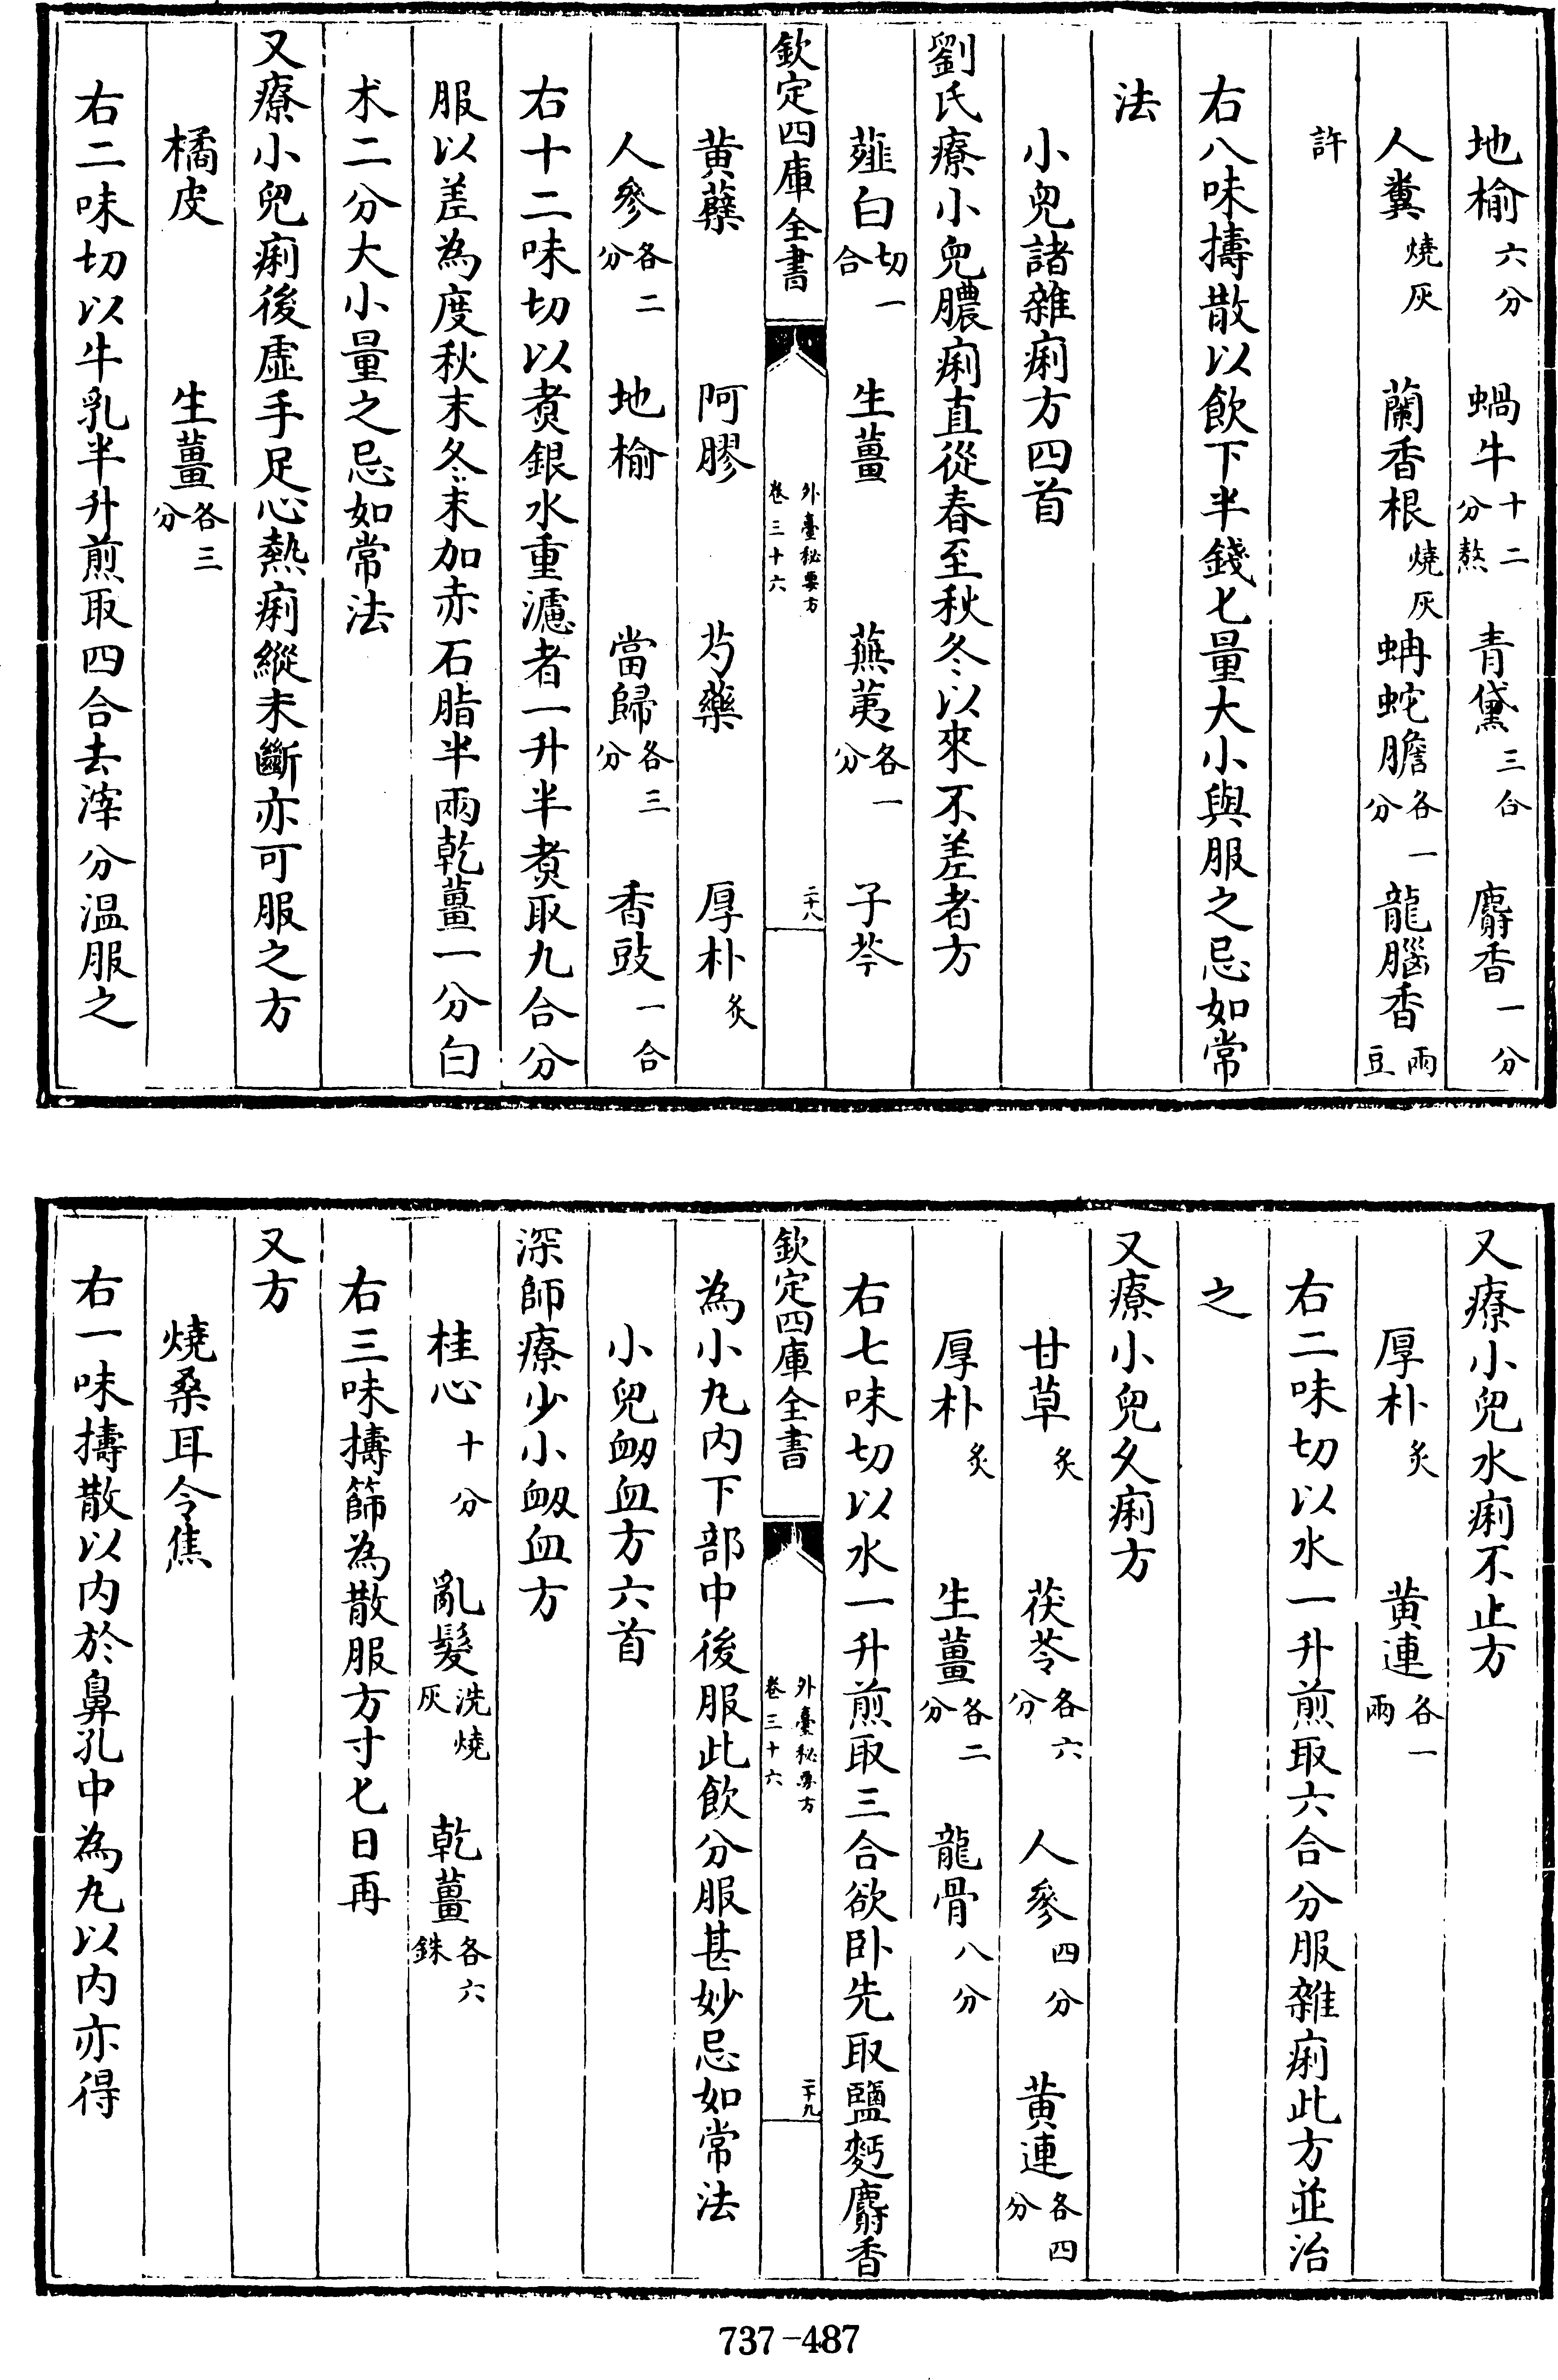 地榆六分　蝸牛十二分熬　青黛三合　麝香一分
人糞燒灰　蘭香根燒灰　蚺蛇膽各一分　龍腦香兩豆
許
右八味擣散以飲下半錢匕量大小與服之忌如常
法
小兒諸雜痢方四首
劉氏療小兒膿痢直從春至秋冬以來不差者方
薤白切一合　生薑　蕪荑各一分　子芩
欽定四庫全書　外臺秘要方卷三十六　二十八
黄蘗　阿膠　芍藥　厚朴炙
人參各二分　地榆　當歸各三分　香豉一合
右十二味切以煑銀水重濾者一升半煑取九合分
服以差為度秋末冬末加赤石脂半兩乾薑一分白
朮二分大小量之忌如常法
又療小兒痢後虛手足心熱痢縱未斷亦可服之方
橘皮　生薑各三分
右二味切以牛乳半升煎取四合去滓分温服之
又療小兒水痢不止方
厚朴炙　黄連各一兩
右二味切以水一升煎取六合分服雜痢此方並治
之
又療小兒久痢方
甘草炙　茯苓各六分　人參四分　黄連各四分
厚朴炙　生薑各二分　龍骨八分
右七味切以水一升煎取三合欲卧先取鹽麫麝香
欽定四庫全書　外臺秘要方卷三十六　二十九
為小丸内下部中後服此飲分服甚妙忌如常法
小兒衂血方六首
深師療少小衂血方
桂心十分　亂髮洗燒灰　乾薑各六銖
右三味擣篩為散服方寸匕日再
又方
燒桑耳令焦
右一味擣散以内於鼻孔中為丸以内亦得
737-487